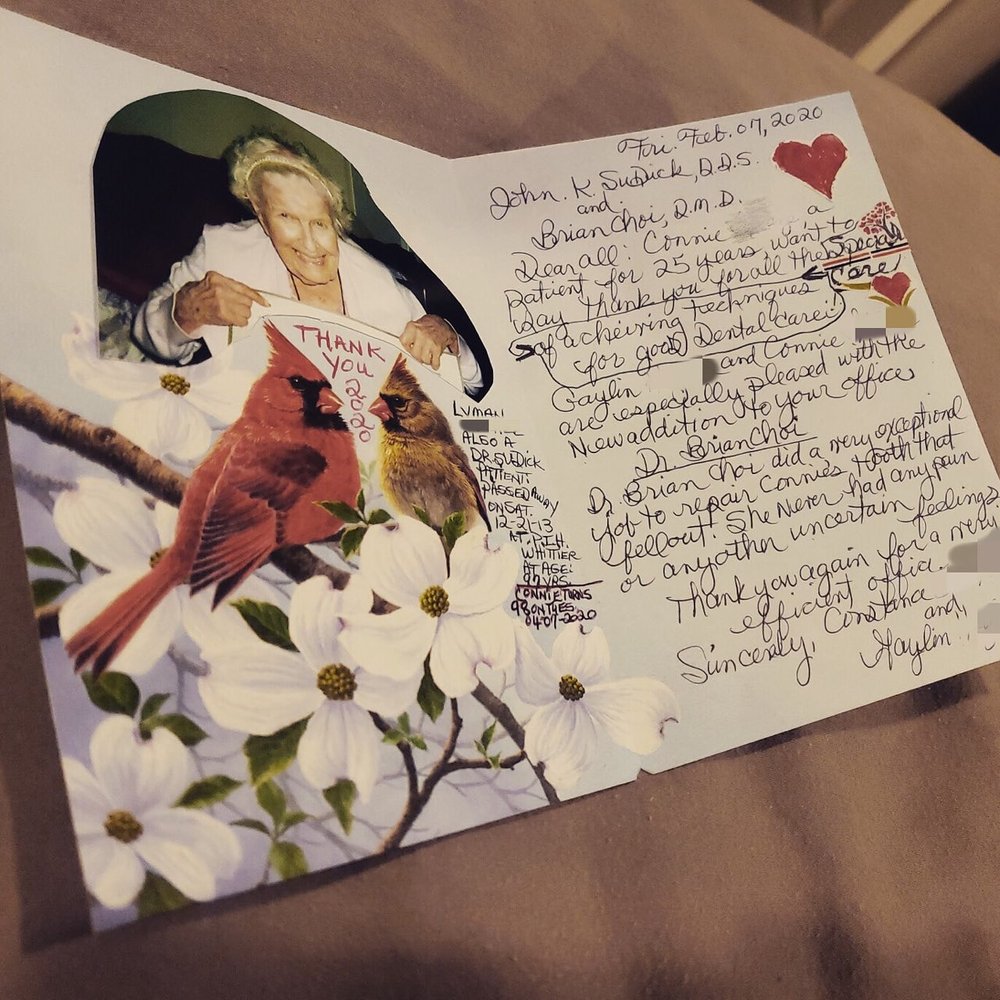 THANK
YOU
2020
LYMAN
ALSO A
DR. SUDICK
PATIENT:
PASSED AWAY
ON SAT.
12-21-13
AT P.I.H.
WHITTIER
AT AGE:
97 YRS.
CONNIE TURNS
98 ON TUES.
04-07-2020
Fri. Feb. 07, 2020
John. K. SuDick, D.D.S.
and
Brian Choi, D.M.D.
Dear all: Connie a
patient for 25 years, want to
say thank you for all the Special
Care
of acheiving techniques
for good Dental Care!
Gaylin and Connie
are especially pleased with the
New addition to your office
Dr. Brian Choi
Dr. Brian Choi did a very exceptional
job to repair Connies tooth that
fellout! She Never had any pain
or any other uncertain feelings
Thank you again for a very
efficient office.
Sincerly, Constance and,
Gaylin